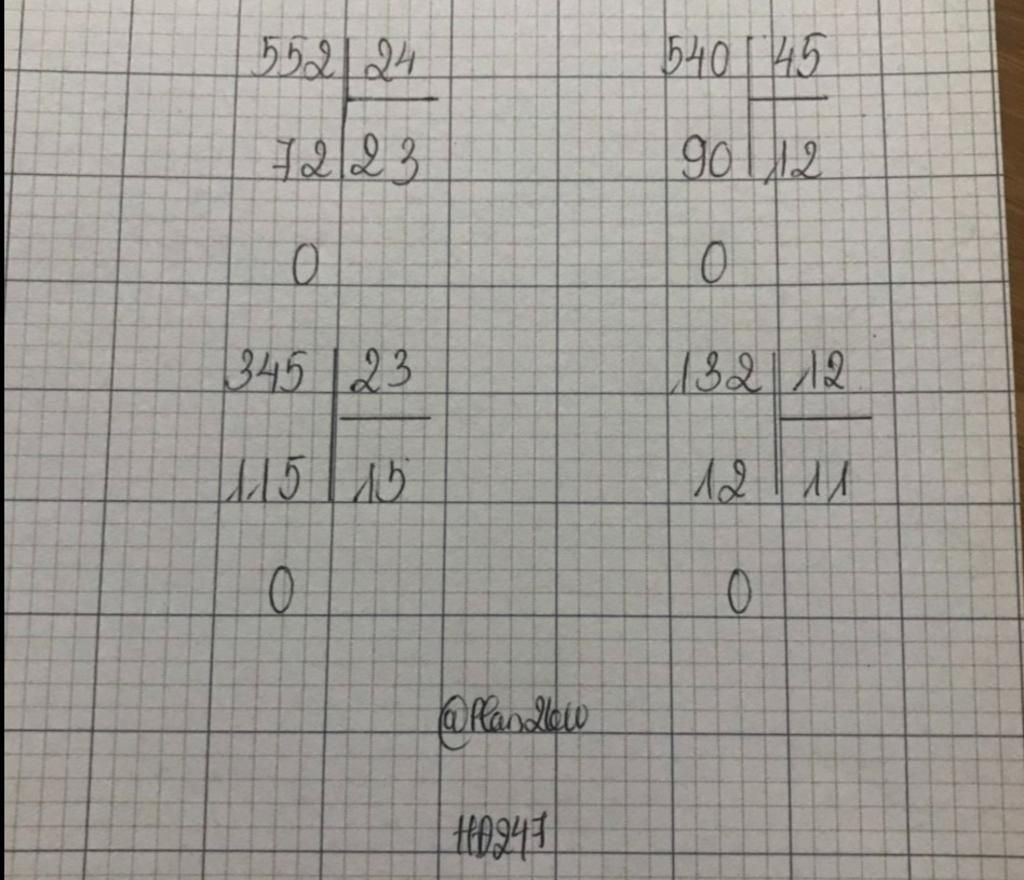 552 24 540 45
72 23 90 12
0 0
345 23 132 12
115 15 12 11
0 0
HD247